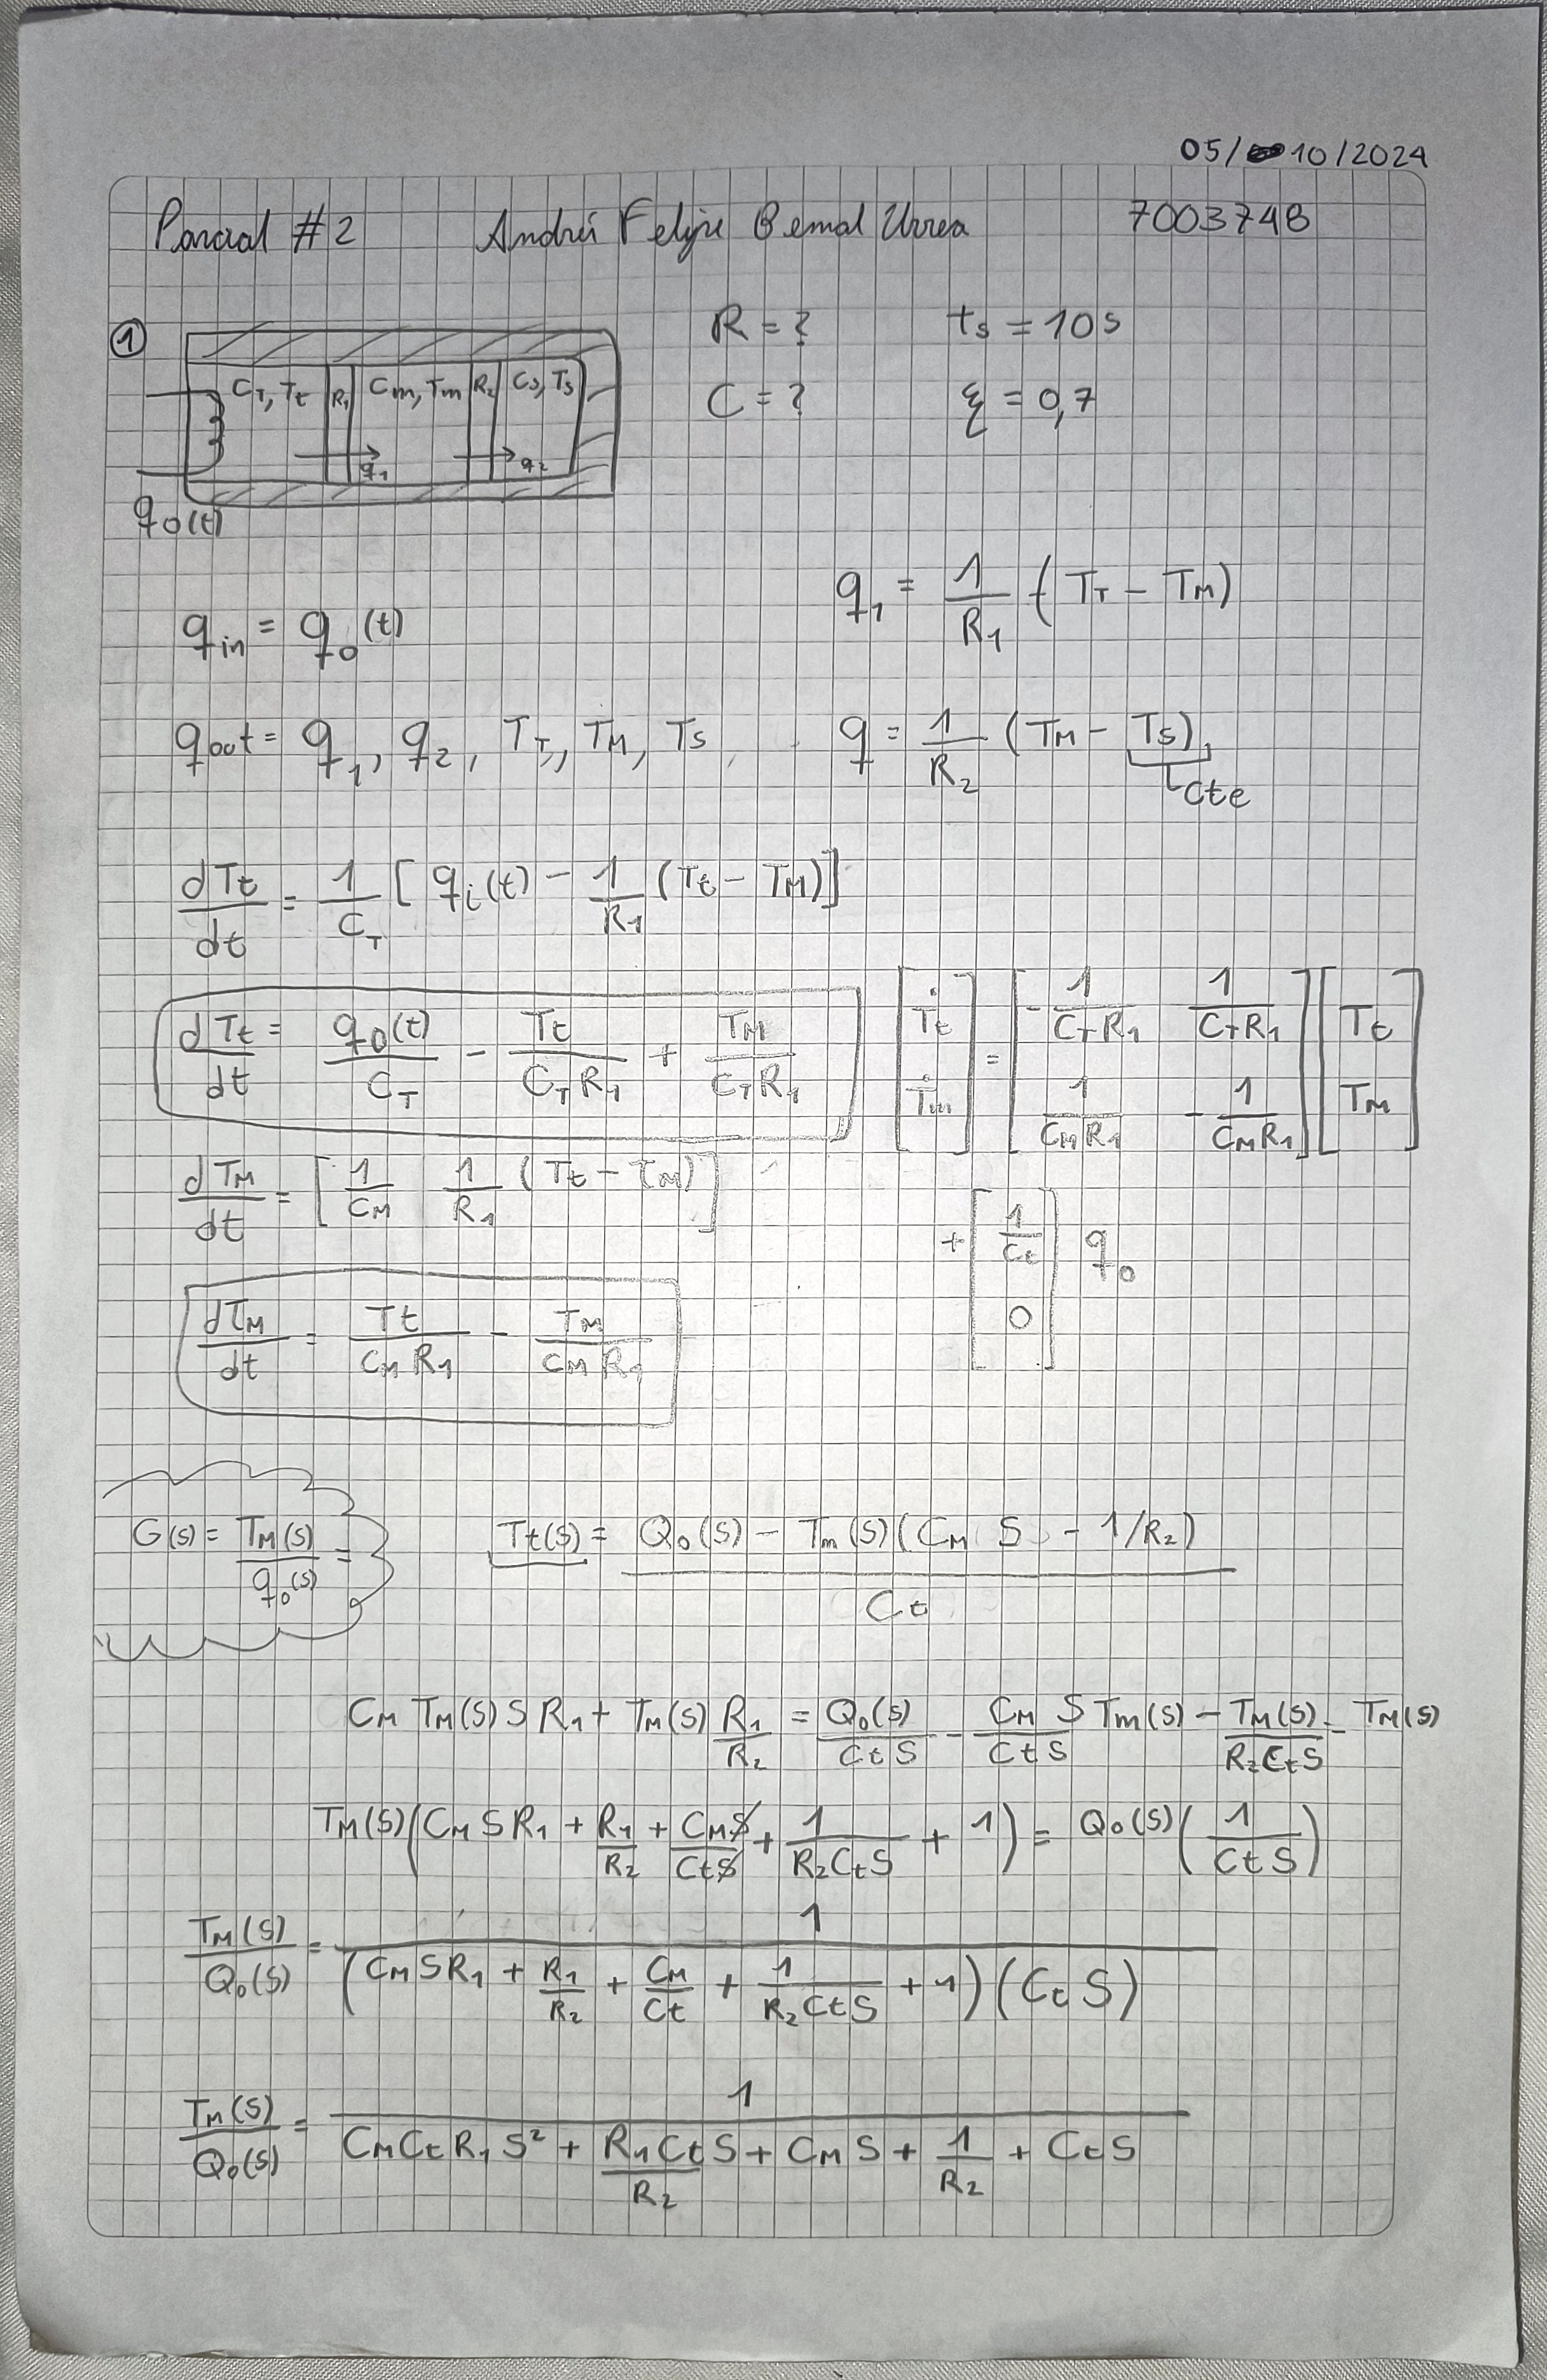 05/10/2024
Parcial #2 Andrés Felipe Bernal Urrea 7003748
① R = ? ts = 10s
C_T, T_t R_1 C_m, T_m R_2 C_s, T_s C = ? ξ = 0,7
q_1 q_2
q_0(t)
q_1 = 1/R_1 (T_T - T_M)
q_in = q_0(t)
q_out = q_1, q_2, T_T, T_M, T_S q = 1/R_2 (T_M - T_S)
Cte
dT_t/dt = 1/C_T [q_i(t) - 1/R_1 (T_t - T_M)]
dT_t/dt = q_0(t)/C_T - T_t/(C_T R_1) + T_M/(C_T R_1) [Ṫ_t; Ṫ_m] = [-1/(C_T R_1) 1/(C_T R_1); 1/(C_M R_1) -1/(C_M R_1)] [T_t; T_M]
dT_M/dt = [1/C_M 1/R_1 (T_t - T_M)] + [1/C_t; 0] q_0
dT_M/dt = T_t/(C_M R_1) - T_M/(C_M R_1)
G(s) = T_M(s)/q_0(s) = T_t(s) = (Q_0(s) - T_m(s)(C_M S - 1/R_2))/C_t
C_M T_M(s) S R_1 + T_M(s) R_1/R_2 = Q_0(s)/(C_t S) - (C_M S)/(C_t S) T_m(s) - T_M(s)/(R_2 C_t S) - T_M(s)
T_M(s)(C_M S R_1 + R_1/R_2 + (C_M S)/(C_t S) + 1/(R_2 C_t S) + 1) = Q_0(s)(1/(C_t S))
T_M(s)/Q_0(s) = 1/((C_M S R_1 + R_1/R_2 + C_M/C_t + 1/(R_2 C_t S) + 1)(C_t S))
T_M(s)/Q_0(s) = 1/(C_M C_t R_1 S² + (R_1 C_t)/R_2 S + C_M S + 1/R_2 + C_t S)